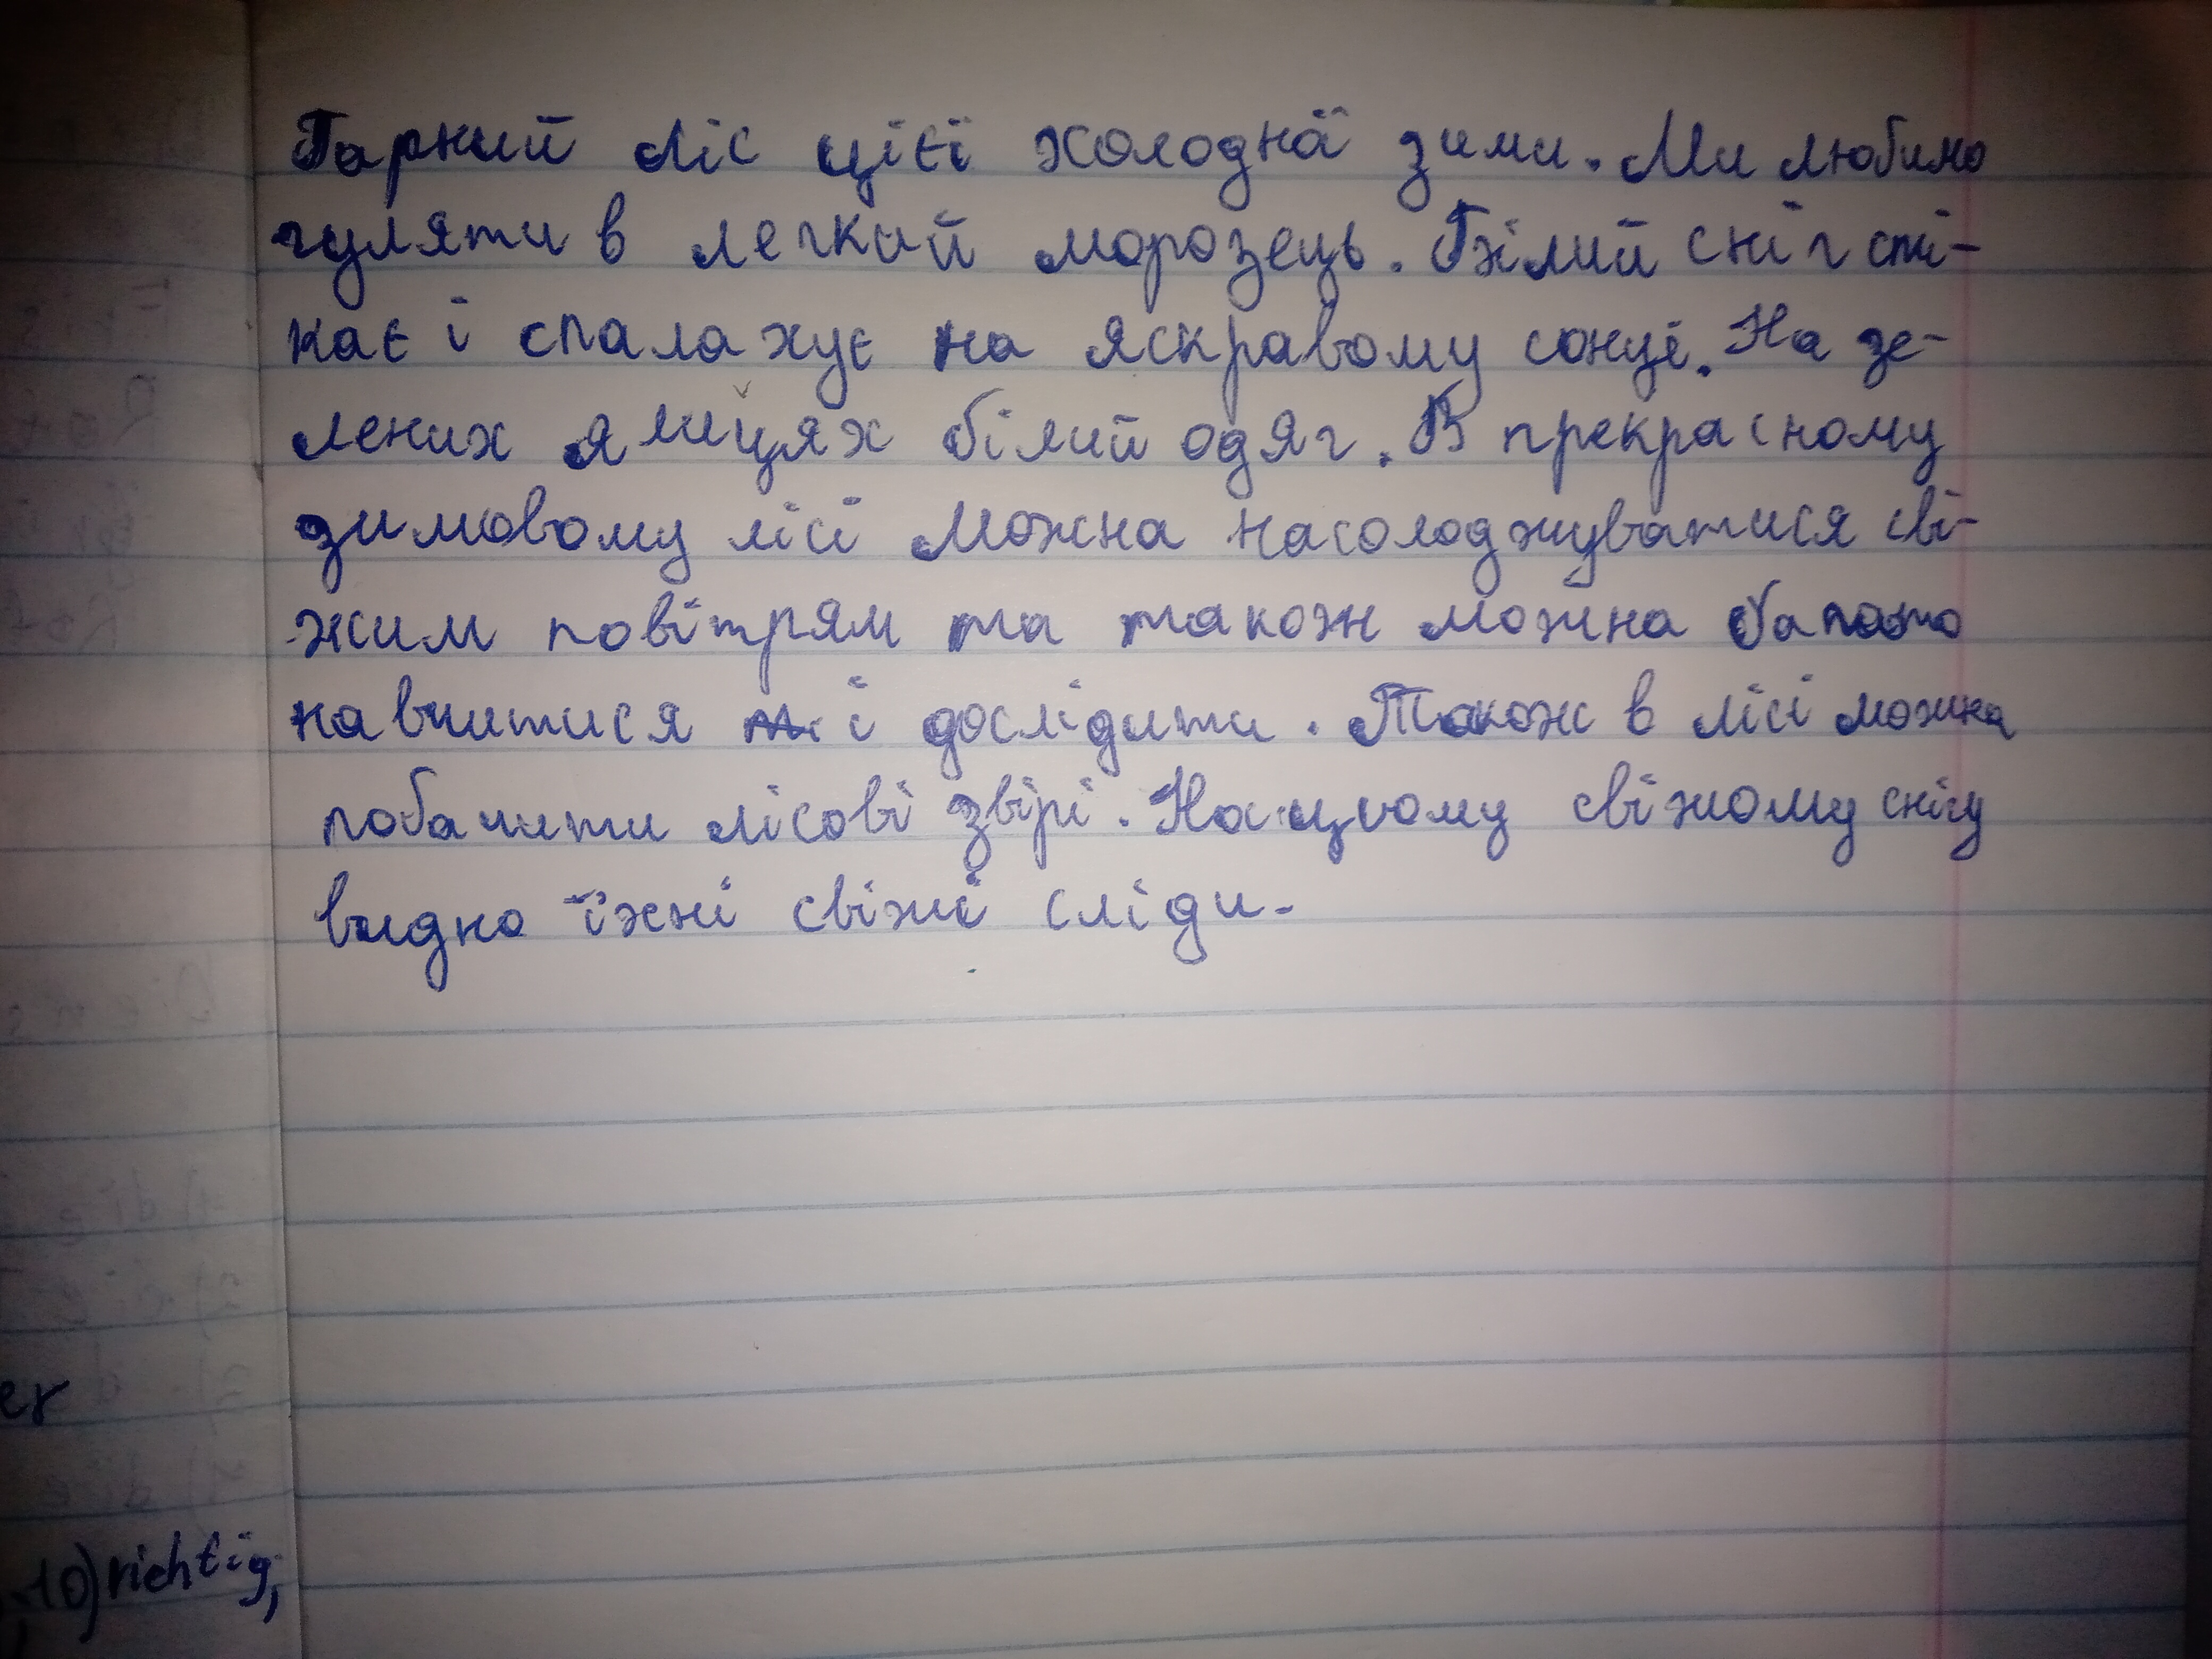 Гарний ліс цієї холодної зими. Ми любимо
гуляти в легкий морозець. Білий сніг сті-
кає і спалахує на яскравому сонці. На зе-
лених ялицях білий одяг. В прекрасному
зимовому лісі можна насолоджуватися сві-
жим повітрям та також можна багато
навчитися і дослідити. Також в лісі можна
побачити лісові звірі. На цьому свіжому снігу
видно їхні свіжі сліди.
er
10) richtig,